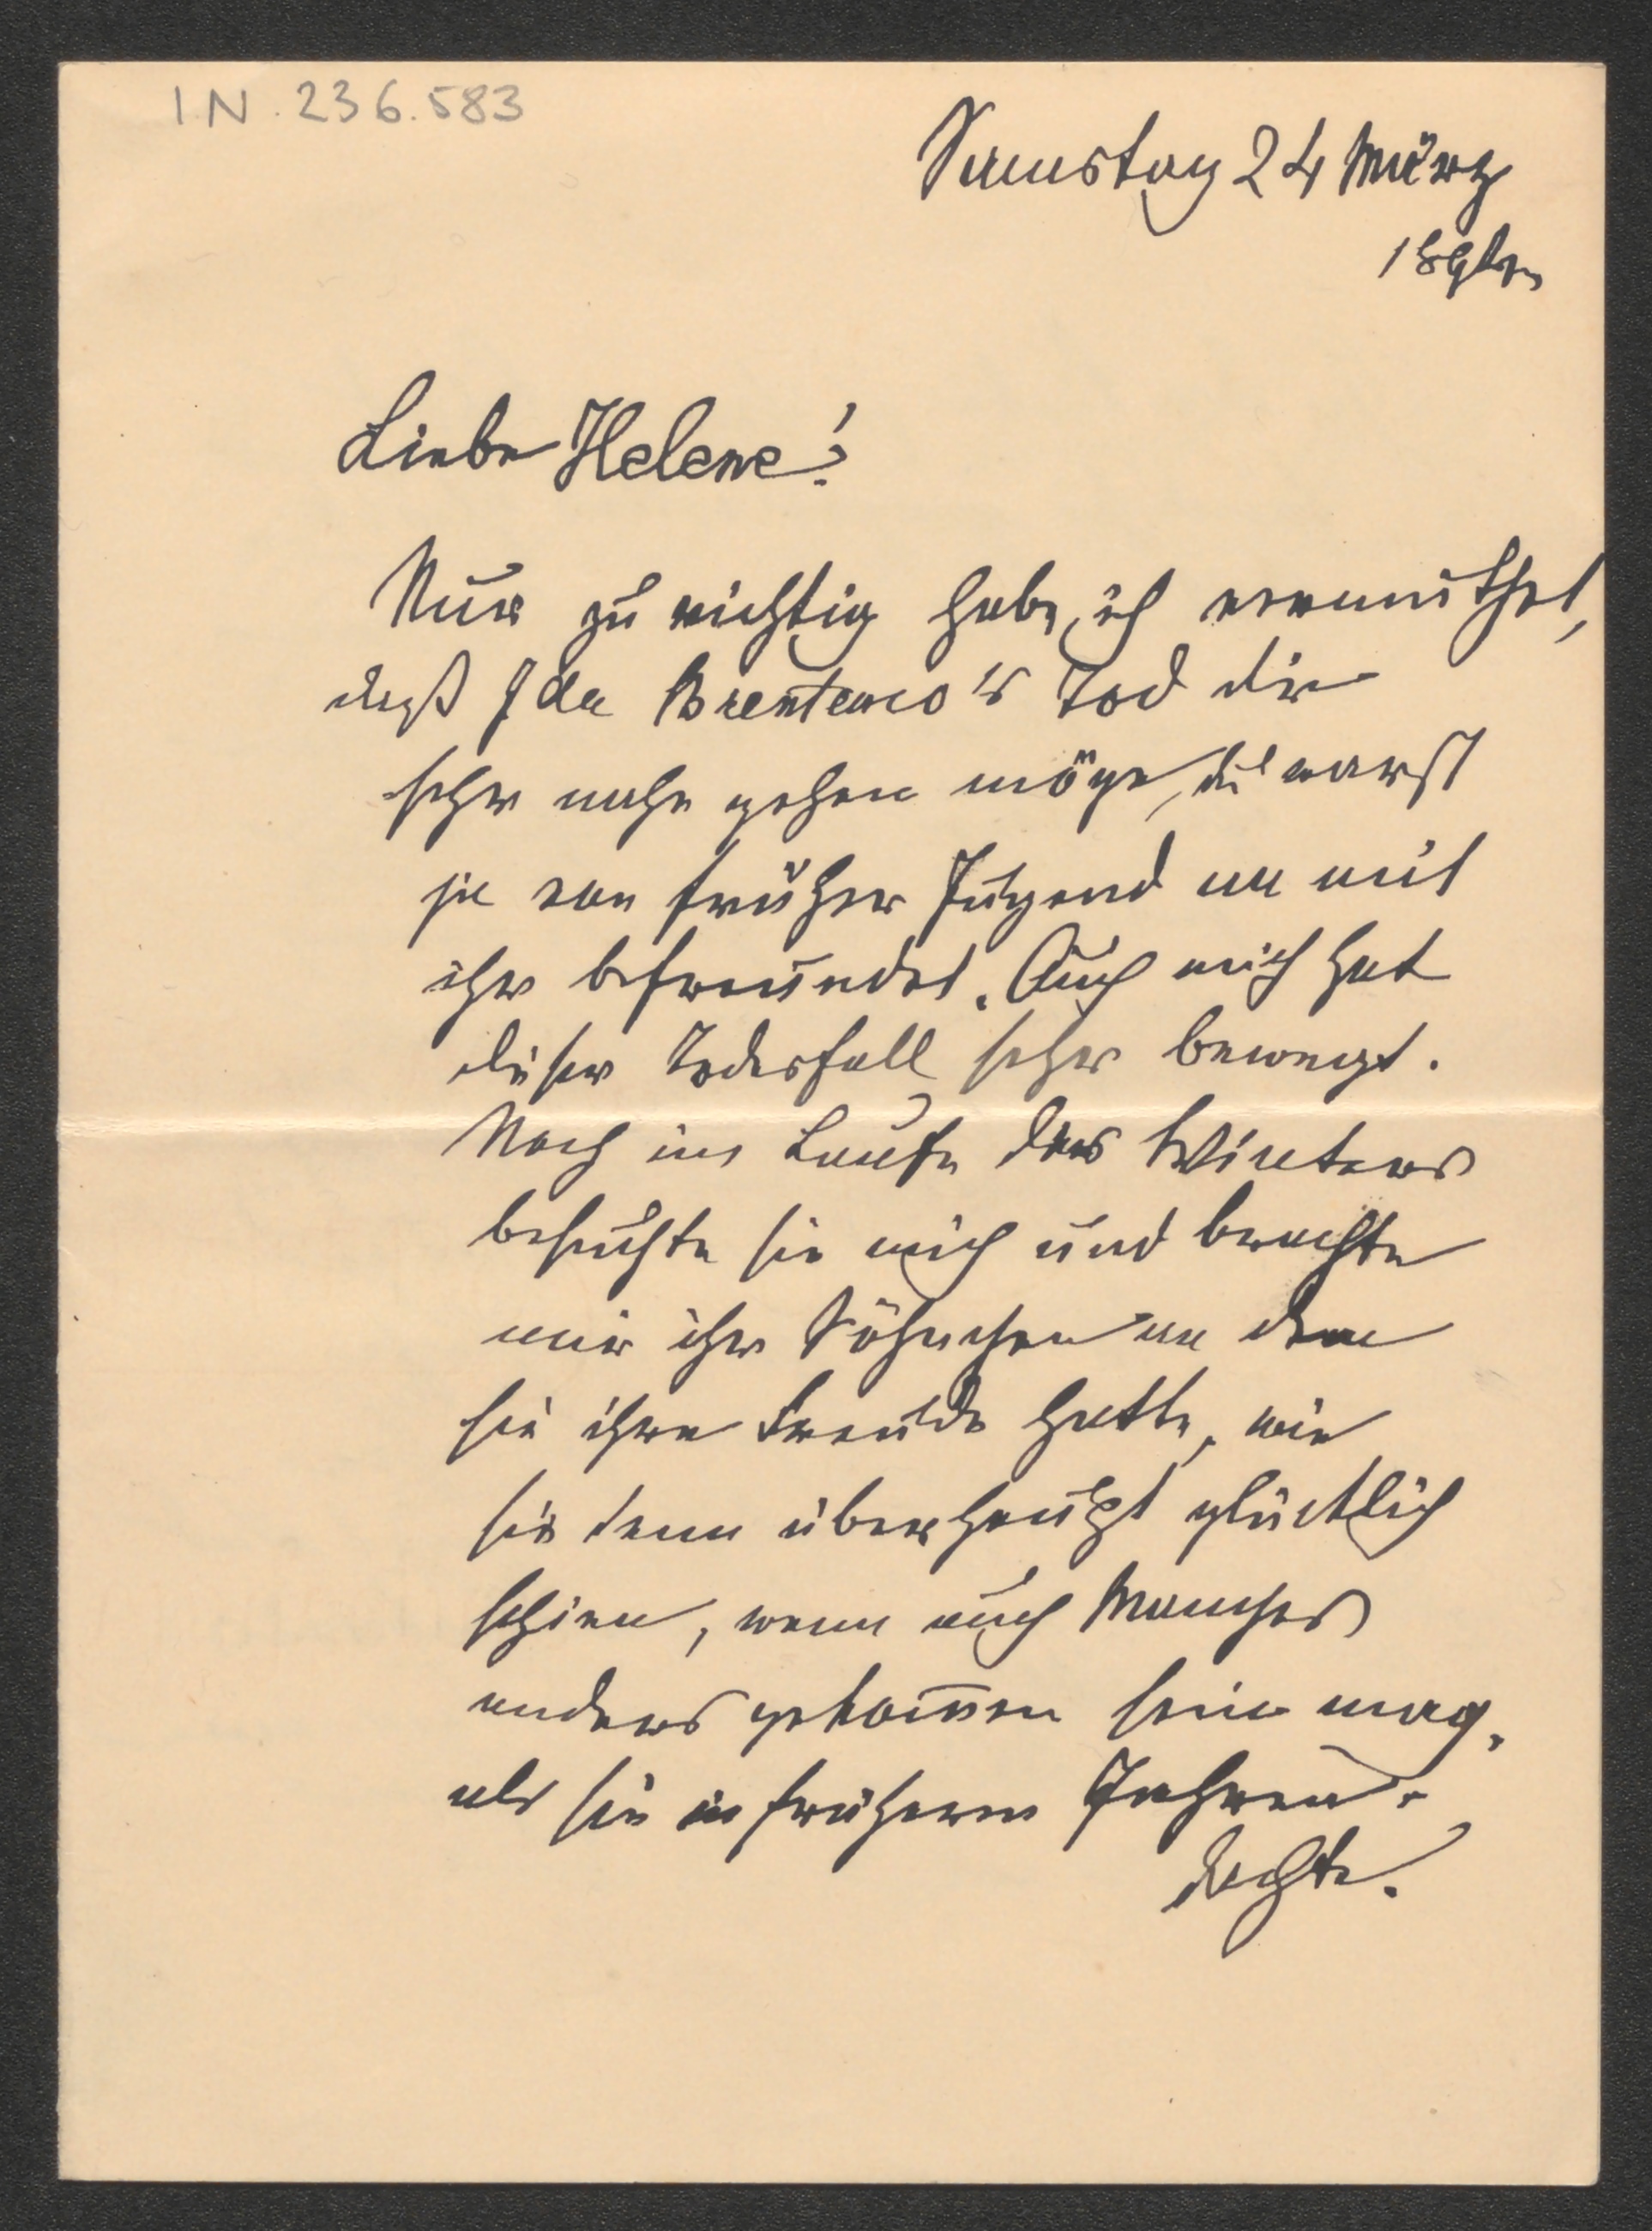 I.N. 236.583
Samstag 24 März
Liebe Helene!
Nur zu richtig habe ich vermuthet,
daß Ida Brentano's Tod dir
sehr nahe gehen möge, du warst
ja von früher Jugend an mit
ihr befreundet. Auch mich hat
dieser Todesfall sehr bewegt.
Noch im Laufe des Winters
besuchte sie mich und brachte
mir ihr Söhnchen an dem
sie ihre Freude hatte, wie
sie denn überhaupt glücklich
schien, wenn auch Manches
anders gekom̅en sein mag,
als sie in früheren Jahren
dachte.